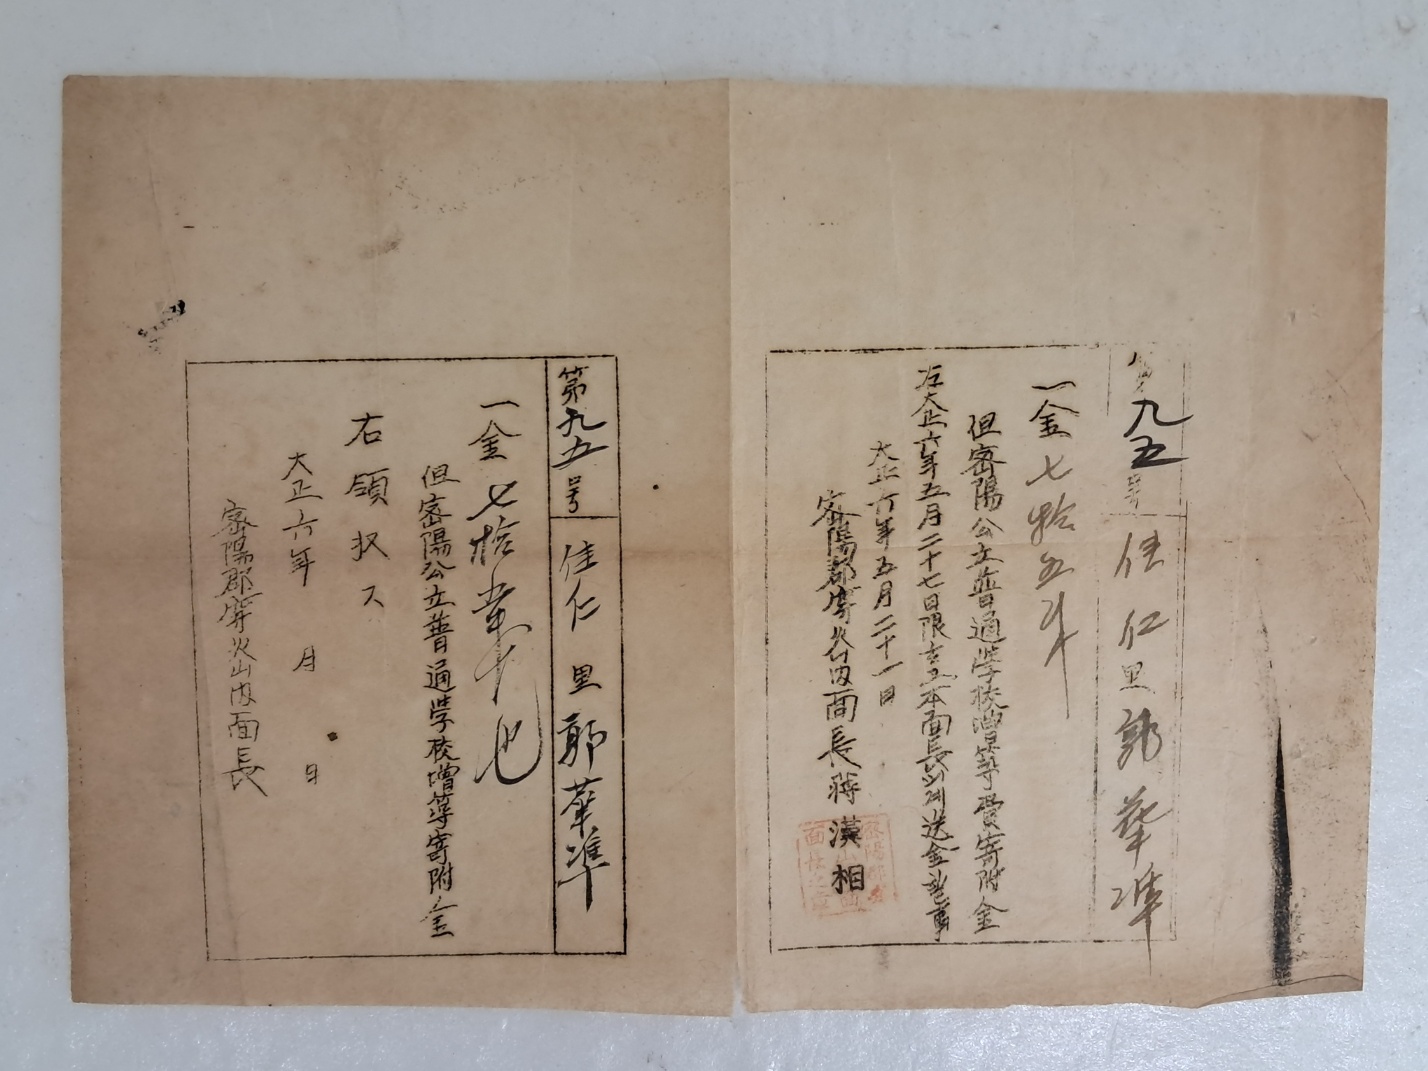 第九五号 佳仁里 郭華準
一金七拾五戔
但密陽公立普通学校增築費寄附金
右大正六年五月二十七日限本面長送金事
大正六年五月二十一日
密陽郡穿火山内面長蒋漢相
第九五号 佳仁里 郭華準
一金七拾五戔也
但密陽公立普通学校增築寄附金
右領収ス
大正六年 月 日
密陽郡穿火山内面長